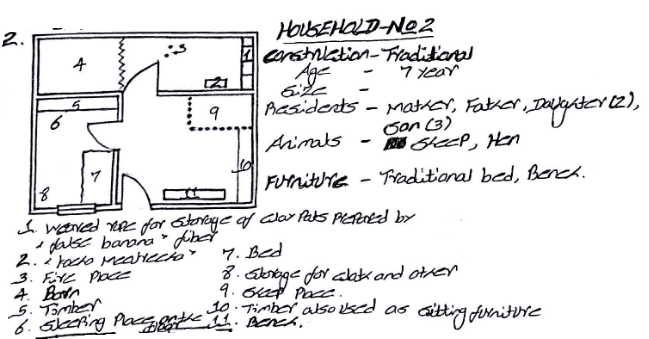 2.
HOUSEHOLD-No2
Construction - Traditional
Age - 7 year
Size -
Residents - Mother, Father, Daughter (2),
Son (3)
Animals - Sheep, Hen
Furniture - Traditional bed, Bench.
1 2 3 4 5 6 7 8 9 10 11
1. Weaved rope for storage of clay pots prepared by
"false banana" fiber
2.
3. Fire Place
4. Barn
5. Timber
6. Sleeping Place on the floor
7. Bed
8. Storage for clothes and other
9. Sheep Place.
10. Timber also used as sitting furniture
11. Bench.